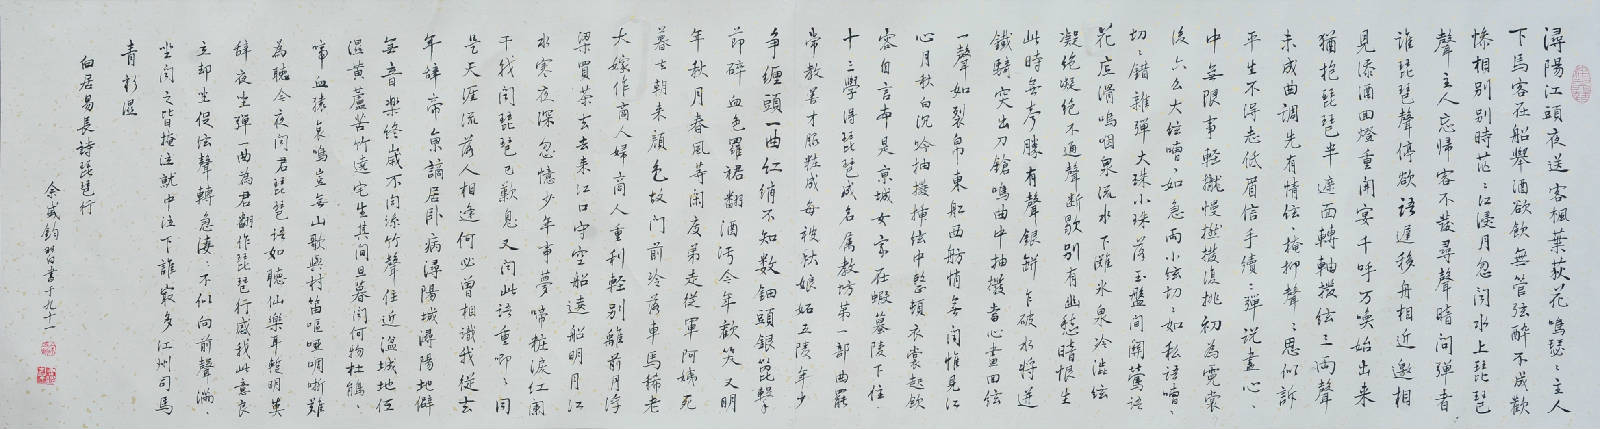 潯陽江頭夜送客楓葉荻花鳴瑟〻主人
下馬客在船舉酒欲飲無管弦醉不成歡
慘相別別時茫〻江浸月忽聞水上琵琶
聲主人忘歸客不發尋聲暗問彈者
誰琵琶聲停欲語遲移舟相近邀相
見添酒回燈重開宴千呼万喚始出来
猶抱琵琶半遮面轉軸撥弦三兩聲
未成曲調先有情弦〻掩抑聲〻思似訴
平生不得志低眉信手續〻彈說盡心
中無限事輕攏慢撚撥復挑初為霓裳
後六幺大弦嘈〻如急雨小弦切〻如私語嘈〻
切〻錯雜彈大珠小珠落玉盤間關鶯語
花底滑嗚咽泉流水下灘氷泉冷澁弦
凝絶凝絶不通聲斷歇別有幽愁暗恨生
此時無聲勝有聲銀缾乍破水將迸
鐵騎突出刀鎗鳴曲中抽撥當心畫四弦
一聲如裂帛東船西舫悄無聞惟見江
心月秋白沉吟抽撥揷弦中整頓衣裳起斂
容自言本是京城女家在蝦蟇陵下住
十三學得琵琶成名属教坊第一部曲罷
常教善才服粧成每被秋娘妬五陵年少
争纏頭一曲紅綃不知數鈿頭銀篦擊
節碎血色羅裙翻酒污今年歡笑又明
年秋月春風等閑度弟走從軍阿姨死
暮去朝来顏色故门前冷落車馬稀老
大嫁作商人婦商人重利輕別離前月浮
梁買茶去去来江口守空船遶船明月江
水寒夜深忽憶少年事夢啼粧淚紅闌
干我聞琵琶已歎息又聞此語重唧〻同
是天涯淪落人相逢何必曾相識我從去
年辞帝京謫居卧病潯陽城潯陽地僻
無音樂終歲不聞絲竹聲住近湓城地低
濕黄蘆苦竹遶宅生其間旦暮聞何物杜鵑
啼血猿哀鳴豈無山歌與村笛嘔啞嘲哳難
為聽今夜聞君琵琶語如聽仙樂耳暫明莫
辞夜坐彈一曲為君翻作琵琶行感我此意良
立却坐促弦聲轉急淒〻不似向前聲滿
坐聞之皆掩泣就中泣下誰最多江州司馬
青衫濕
白居易長詩琵琶行
余盛鈞習書十九十一